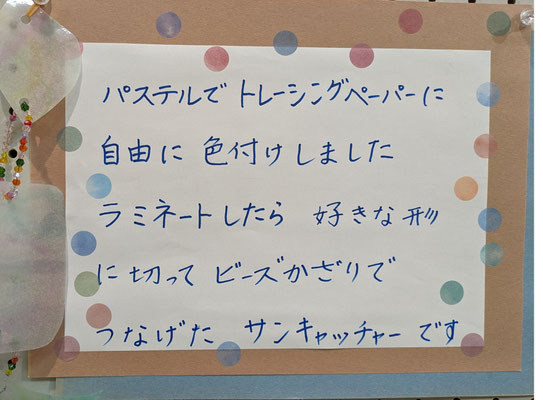 パステルで トレーシングペーパーに
自由に 色付けしました
ラミネートしたら 好きな形
に切って ビーズかざりで
つなげた サンキャッチャーです